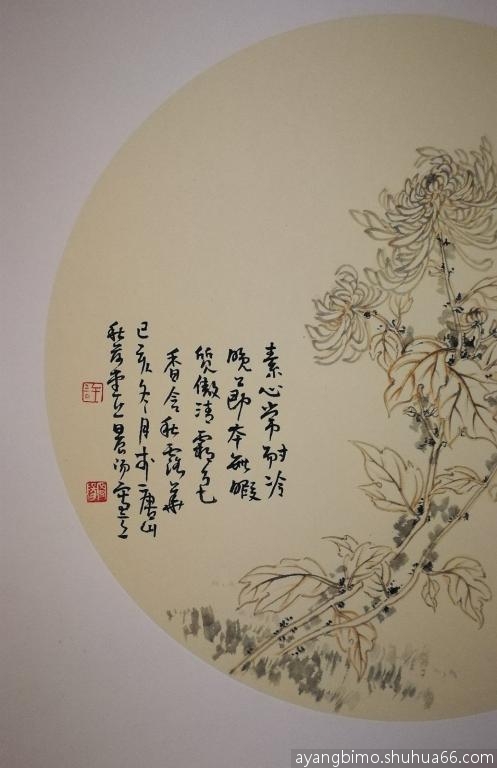 素心常耐冷
晚節本無暇
質傲清霜色
香含秋露華
己亥冬月於唐山
秋
ayangbimo.shuhua66.com